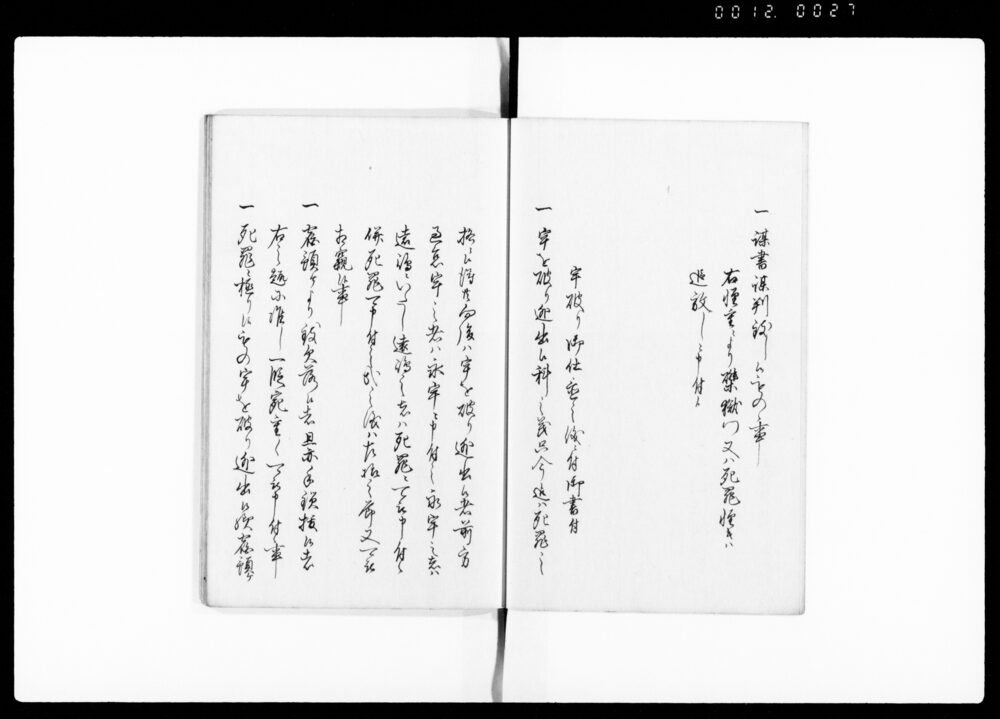 0012. 0027
一 謀書謀判致し候もの之事
右軽重ニより磔獄門又ハ死罪軽キハ
追放ニ申付候
牢破り御仕置之儀ニ付御書付
一 牢を破り逃出候科之義只今迄ハ死罪ニ
候得共向後ハ牢を破り逃出候者前方
過怠牢之者ハ永牢ニ申付之永牢之者ハ
遠嶋いたし遠嶋之者ハ死罪ニ可申付候
併死罪可申付之儀ハ
相窺候事
一 宿預ケより致欠落候者且亦手鎖抜候者
右之趣ニ准し一段宛重く可申付事
一 死罪ニ極り候もの牢を破り逃出候歟宿預ケ